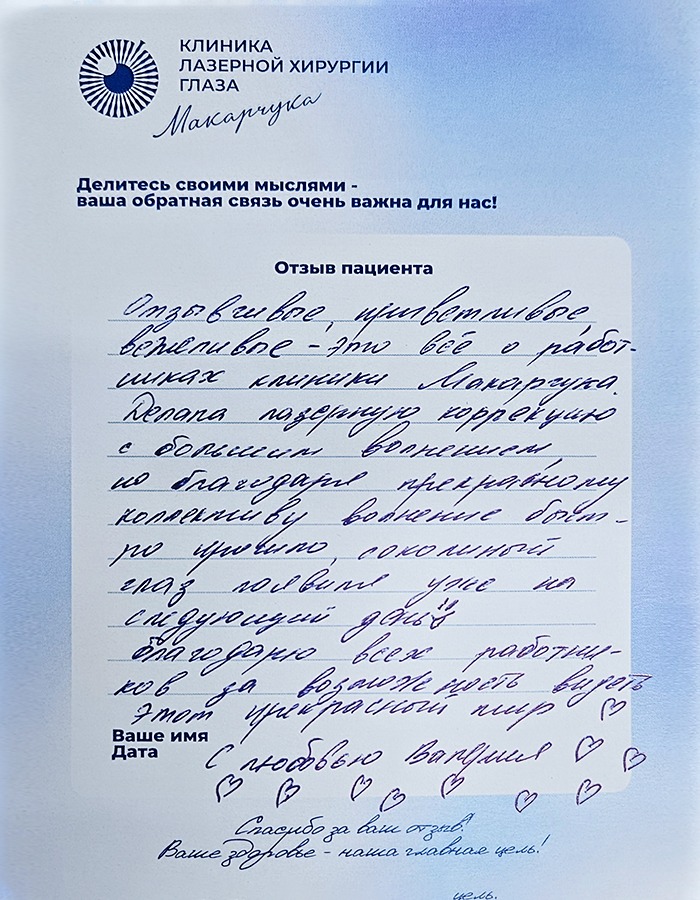 КЛИНИКА
ЛАЗЕРНОЙ ХИРУРГИИ
ГЛАЗА
Макарчука
Делитесь своими мыслями -
ваша обратная связь очень важна для нас!
Отзыв пациента
Отзывчивые, приветливые
вежливые - это всё о работ-
никах клиники Макарчука.
Делала лазерную коррекцию
с большим волнением,
но благодаря прекрасному
коллективу волнение быст-
ро прошло, соколиный
глаз появился уже на
следующий день
Благодарю всех работни-
ков за возможность видеть
этот прекрасный мир ♡
Ваше имя
Дата
С любовью ♡ ♡
♡ ♡ ♡ ♡ ♡ ♡ ♡
Спасибо за ваш отзыв!
Ваше здоровье - наша главная цель!
цель.